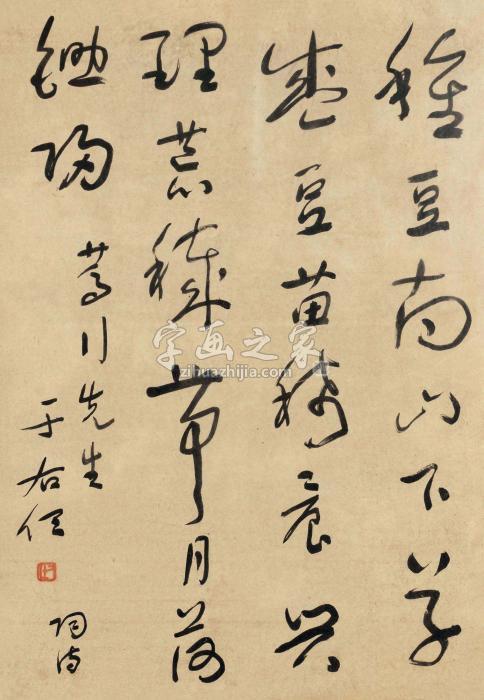 種豆南山下草
盛豆苗稀晨興
理荒穢帶月荷
鋤歸
先生
于右任
陶詩
字画之家
zihuazhijia.com